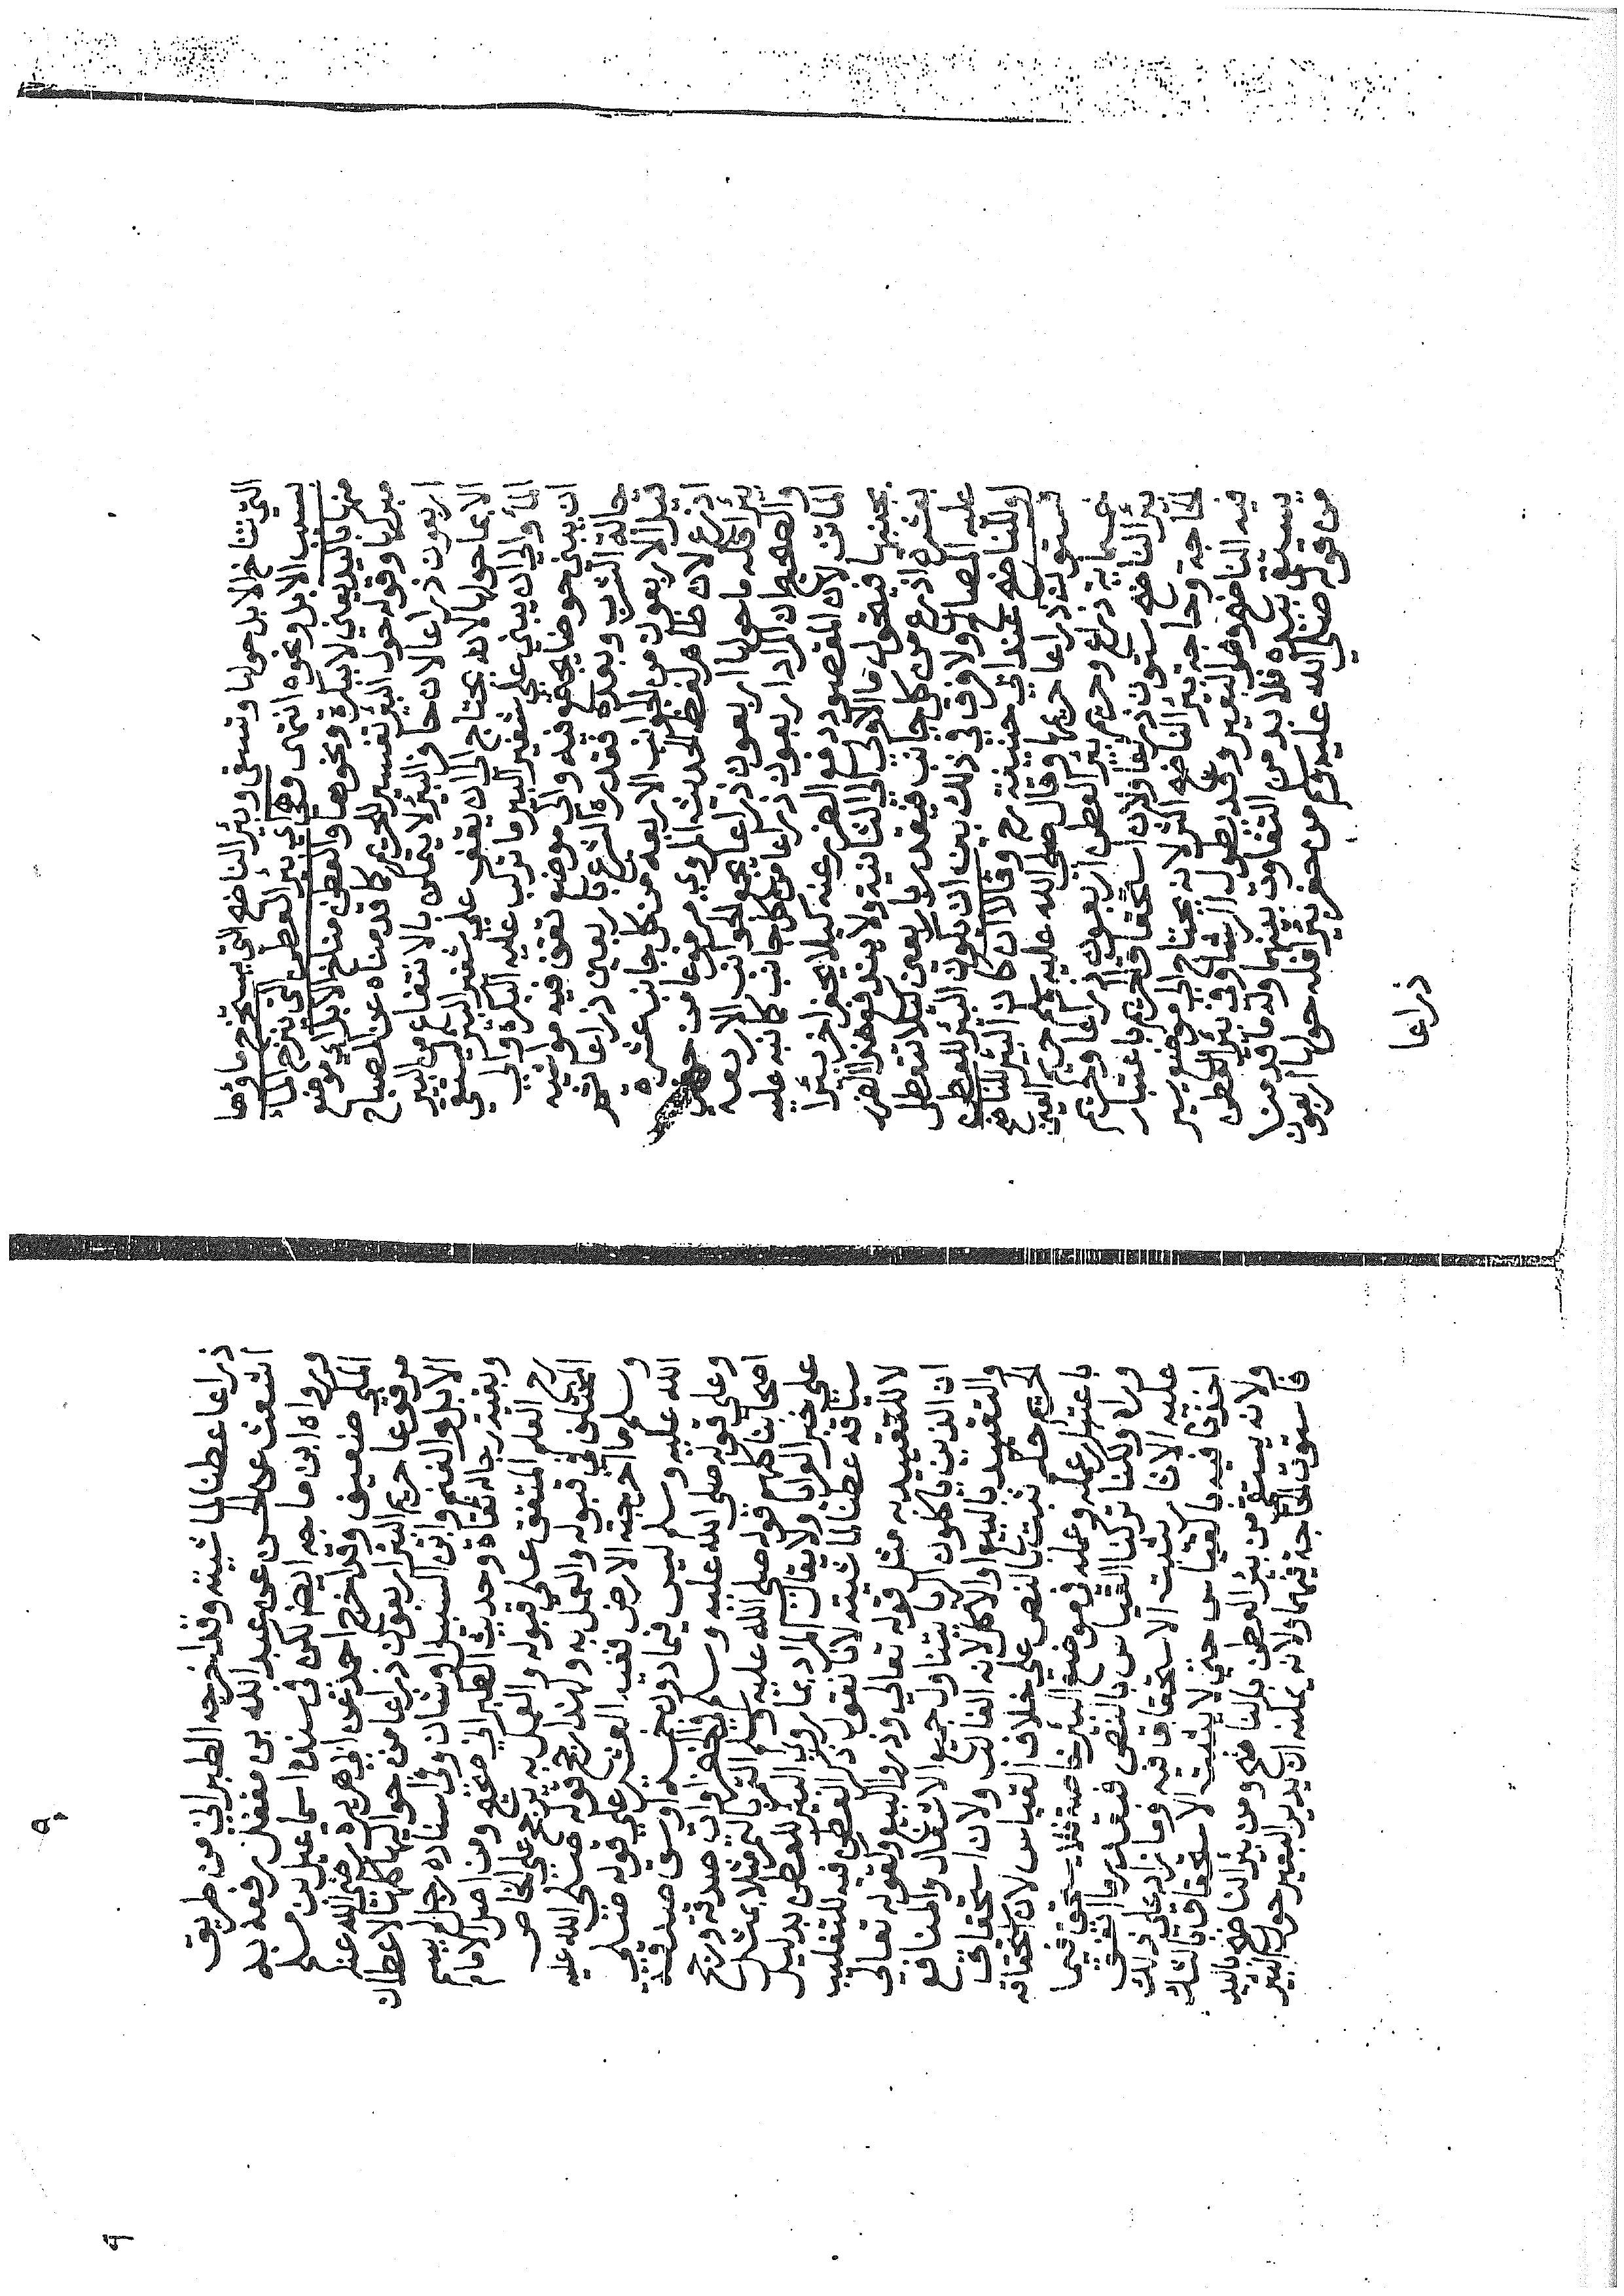 التي تناخ الابل حولها وتسقى وبئر الناضح التي يستخرج ماؤها
بسير الابل ونحوه انتهى وفي بئر العطن التي ينزح الماء
منها باليد يعني لا ببكرة ونحوها والعطن مناخ الابل اي موضع
مبركها وقوله حول البئر تفسير للحريم كما قدمناه عن المصباح
اربعون ذراعا لان حافر البئر لا يتمكن بالانتفاع من البير
الا بما حولها لانه يحتاج الى ان يقف على شفير البئر ليستقي
الماء والى ان يبني على شفير البير ما تركب عليه البكرة والى
ان يبني حوضا يجمع فيه والى موضع تقف فيه مواشيه
حالة الشرب وبعده فقدره الشرع باربعين ذراعا ثم
قيل الاربعون من الجوانب الاربعة من كل جانب عشرة
اذرع لان ظاهر لفظ الحديث المروي مرفوعا من حفر
بئرا فله ما حولها اربعون ذراعا يجمع الجوانب الاربعه
والصحيح ان المراد اربعون ذراعا من كل جانب كما نبه عليه
الماتن لان المقصود دفع الضرر عنه كيلا يحفر اخر بئرا
بجنبها فيتحول ما الاولى الى الثانية ولا يندفع هذا الضرر
بعشرة اذرع من كل جانب فيقدر باربعين كيلا تتعطل
عليه المصالح ولا فرق في ذلك بين ان يكون البئر للعطن
او للناضح عند ابي حنيفة رح وقالا ان كان البئر للناضح
فستون ذراعا حريمها وقال صلى الله عليه وسلم حريم العين
خمسماية ذراع وحريم بير العطن اربعون ذراعا وحريم
بير الناضح ستون ذراعا ولان استحقاق الحريم باعتبار
الحاجة وحاجة بئر الناضح اكثر لانه يحتاج الى موضع يسير
فيه الناضح وهو البعير وقد يطول الرشاء وفي بئر العطن
يستقي بيده فلا بد من التفاوت بينهما وله ما قدمنا
من قوله صلى الله عليه وسلم من حفر بئرا فله حولها اربعون
ذراعا
ذراعا عطنا لماشيته وقد اخرجه الطبراني من طريق
اشعث عن الحسن عن عبد الله بن مغفل رفعه به
ورواه ابن ماجه ايضا لكن في سنده اسماعيل بن مسلم
المكي ضعيف وقد اخرج احمد عن ابي هريرة رضي الله عنه
مرفوعا حريم البئر اربعون ذراعا من حواليها كلها لاعطان
الابل والغنم وابن السبيل اول شارب وفي اسناده رجل لم يسم
وبقية رجاله ثقاة وحديث الطبراني صحيح ومن اصل الامام
رح العام المتفق على قبوله والعمل به يترجح على الخاص
المختلف في قبوله والعمل به ولهذا رجح قوله صلى الله عليه
وسلم ما اخرجته الارض ففيه العشر على قوله صلى
الله عليه وسلم ليس فيما دون خمسة اوسق صدقة
وعلى قوله صلى الله عليه وسلم ليس في الخضراوات صدقة ورجح
اصحابنا كلهم قوله صلى الله عليه وسلم التمر بالتمر مثلا بمثل
على خبر العرايا ولا يقال المراد بما روى البئر للعطن بدليل
سياقه عطنا لماشيته لانا نقول ذكر العطن فيه للتغليب
لا للتقييد به مثل قوله تعالى وذروا البيع وكقوله تعالى
ان الذين ياكلون الربا يتناول جميع الاشغال والمنافع
والتقييد بالبيع والاكل لانه الغالب ولان استحقاق
الحريم حكم ثبت بالنص على خلاف القياس لان استحقاقه
باعتبار عمله وعمله في موضع البئر خاصة فلا يستحق فيما
وراه ولكنا تركنا القياس بالنص فبقدر ما اتفق
عليه الاثار يثبت الاستحقاق فيه وما زاد على ذلك
اخذنا فيه بالقياس حتى لا يثبت الاستحقاق بالشك
ولانه يستقى من بئر العطن بالناضح ومن بئر الناضح باليد
فاستوت الحاجة فيهما ولانه يمكنه ان يدير البعير حول البير